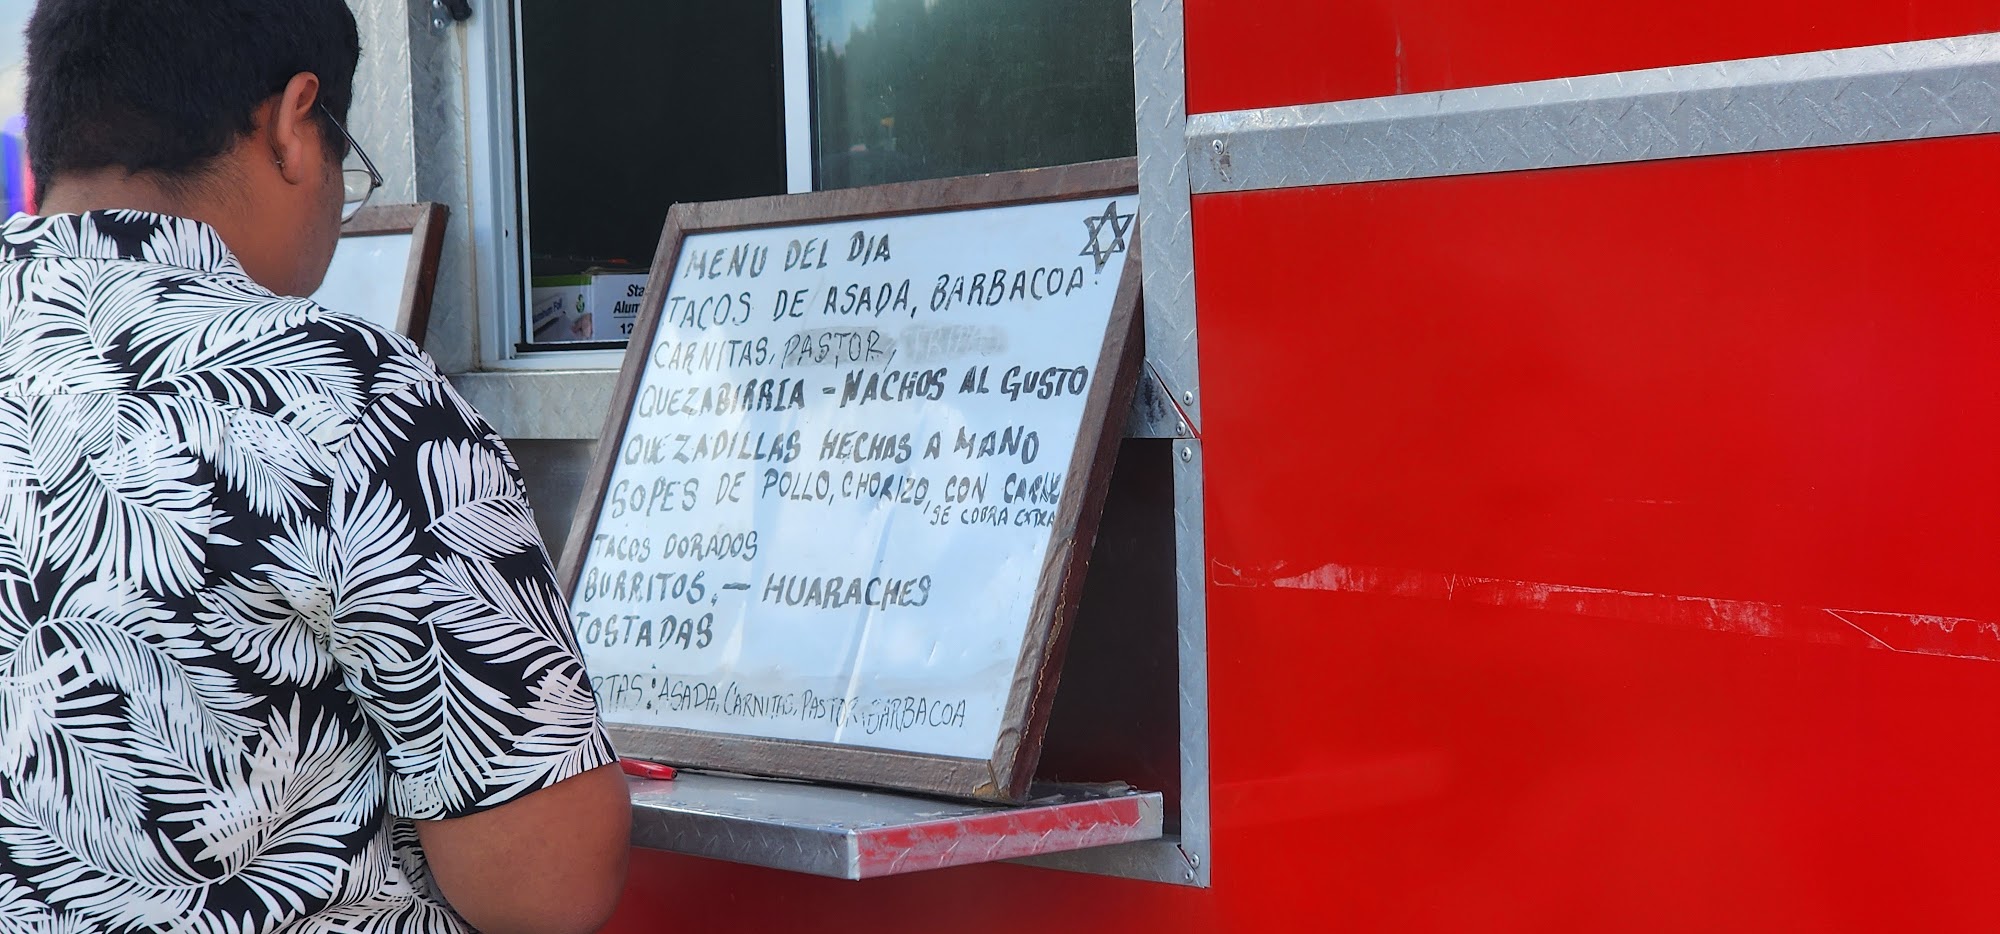 MENU DEL DIA
TACOS DE ASADA, BARBACOA
CARNITAS, PASTOR,
QUEZABIRRIA - NACHOS AL GUSTO
QUEZADILLAS HECHAS A MANO
SOPES DE POLLO, CHORIZO, CON CARNE
SE COBRA EXTRA
TACOS DORADOS
BURRITOS. - HUARACHES
TOSTADAS
RTAS: ASADA, CARNITAS, PASTOR, BARBACOA
Sta
Alum
12